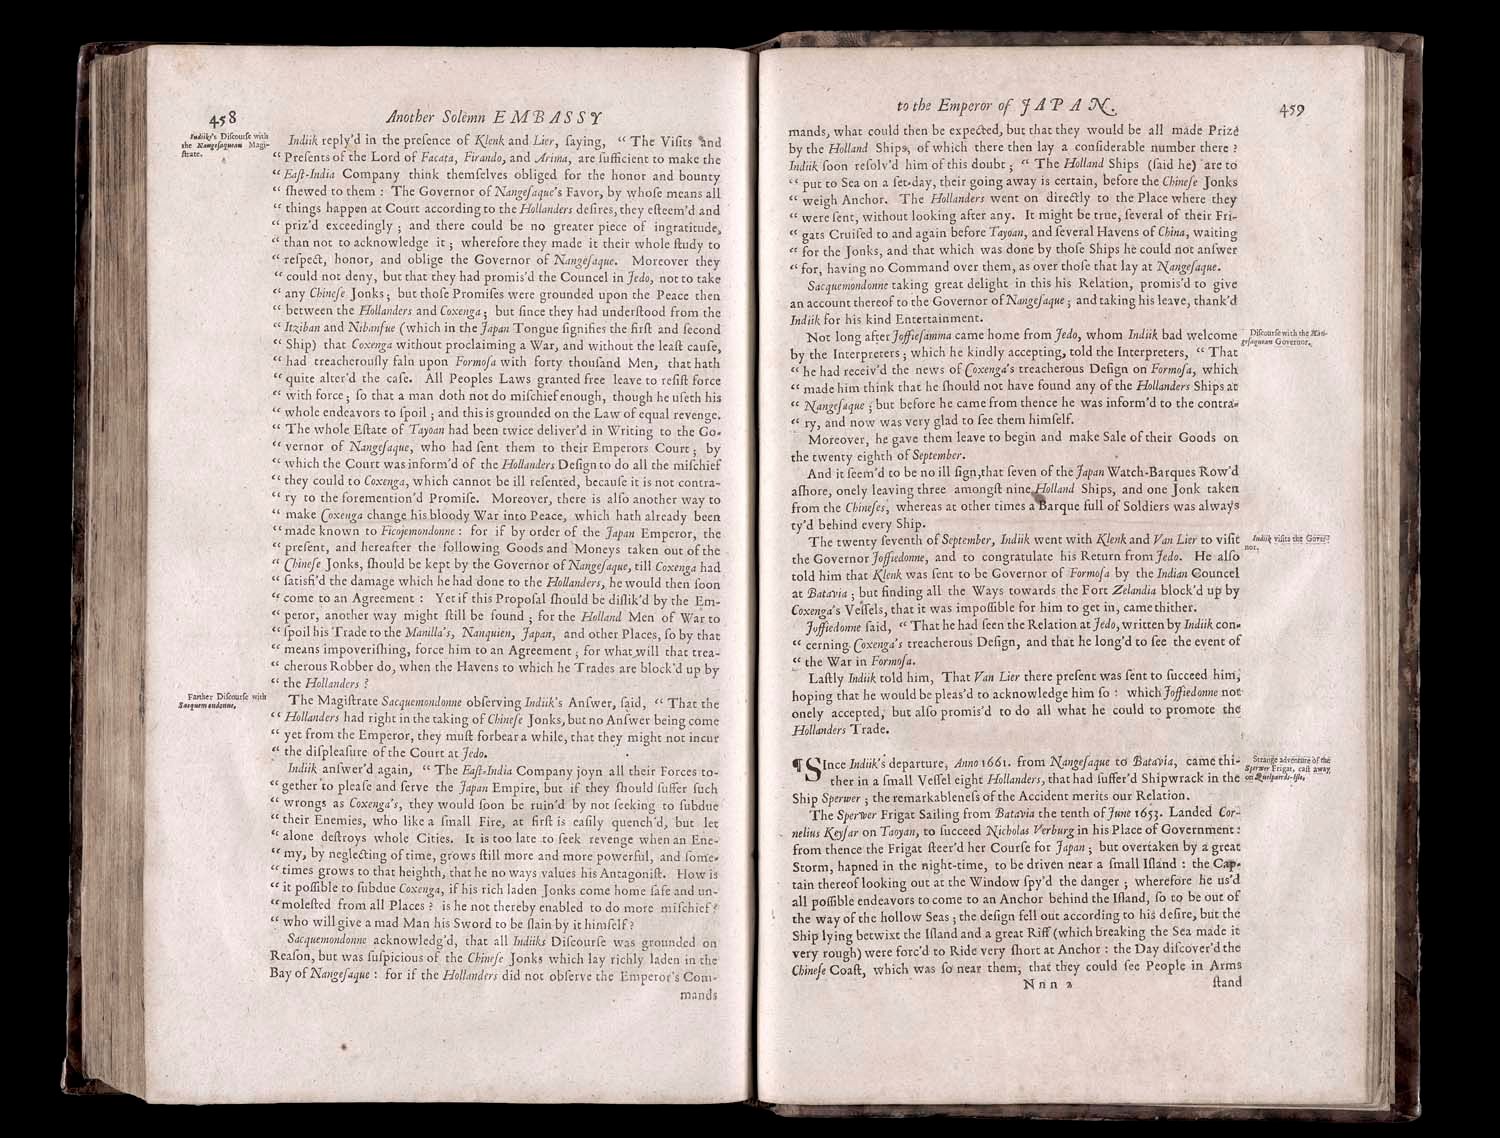 458
Another Solemn EMBASSY
Indiik's Discourse with
the Nangesaquean Magi-
strate.
Indiik reply'd in the presence of Klenk and Lier, saying, “ The Visits and
“ Presents of the Lord of Facata, Firando, and Arima, are sufficient to make the
“ East-India Company think themselves obliged for the honor and bounty
“ shewed to them : The Governor of Nangesaque's Favor, by whose means all
“ things happen at Court according to the Hollanders desires, they esteem'd and
“ priz'd exceedingly ; and there could be no greater piece of ingratitude,
“ than not to acknowledge it ; wherefore they made it their whole study to
“ respect, honor, and oblige the Governor of Nangesaque. Moreover they
“ could not deny, but that they had promis'd the Councel in Jedo, not to take
“ any Chinese Jonks ; but those Promises were grounded upon the Peace then
“ between the Hollanders and Coxenga ; but since they had understood from the
“ Itziban and Nibansue (which in the Japan Tongue signifies the first and second
“ Ship) that Coxenga without proclaiming a War, and without the least cause,
“ had treacherously faln upon Formosa with forty thousand Men, that hath
“ quite alter'd the case. All Peoples Laws granted free leave to resist force
“ with force ; so that a man doth not do mischief enough, though he useth his
“ whole endeavors to spoil ; and this is grounded on the Law of equal revenge.
“ The whole Estate of Tayoan had been twice deliver'd in Writing to the Go-
“ vernor of Nangesaque, who had sent them to their Emperors Court ; by
“ which the Court was inform'd of the Hollanders Design to do all the mischief
“ they could to Coxenga, which cannot be ill resented, because it is not contra-
“ ry to the foremention'd Promise. Moreover, there is also another way to
“ make Coxenga change his bloody War into Peace, which hath already been
“ made known to Ficojemondonne : for if by order of the Japan Emperor, the
“ present, and hereafter the following Goods and Moneys taken out of the
“ Chinese Jonks, should be kept by the Governor of Nangesaque, till Coxenga had
“ satisfi'd the damage which he had done to the Hollanders, he would then soon
“ come to an Agreement : Yet if this Proposal should be dislik'd by the Em-
“ peror, another way might still be found ; for the Holland Men of War to
“ spoil his Trade to the Manilla's, Nanquien, Japan, and other Places, so by that
“ means impoverishing, force him to an Agreement ; for what will that trea-
“ cherous Robber do, when the Havens to which he Trades are block'd up by
“ the Hollanders ?
Farther Discourse with
Sacquemondonne.
The Magistrate Sacquemondonne observing Indiik's Answer, said, “ That the
“ Hollanders had right in the taking of Chinese Jonks, but no Answer being come
“ yet from the Emperor, they must forbear a while, that they might not incur
“ the displeasure of the Court at Jedo.
Indiik answer'd again, “ The East-India Company joyn all their Forces to-
“ gether to please and serve the Japan Empire, but if they should suffer such
“ wrongs as Coxenga's, they would soon be ruin'd by not seeking to subdue
“ their Enemies, who like a small Fire, at first is easily quench'd, but let
“ alone destroys whole Cities. It is too late to seek revenge when an Ene-
“ my, by neglecting of time, grows still more and more powerful, and some-
“ times grows to that heighth, that he no ways values his Antagonist. How is
“ it possible to subdue Coxenga, if his rich laden Jonks come home safe and un-
“ molested from all Places ? is he not thereby enabled to do more mischief ?
“ who will give a mad Man his Sword to be slain by it himself ?
Sacquemondonne acknowledg'd, that all Indiiks Discourse was grounded on
Reason, but was suspicious of the Chinese Jonks which lay richly laden in the
Bay of Nangesaque : for if the Hollanders did not observe the Emperor's Com-
mands
to the Emperor of JAPAN.
459
mands, what could then be expected, but that they would be all made Prize
by the Holland Ships, of which there then lay a considerable number there ?
Indiik soon resolv'd him of this doubt ; “ The Holland Ships (said he) are to
“ put to Sea on a set-day, their going away is certain, before the Chinese Jonks
“ weigh Anchor. The Hollanders went on directly to the Place where they
“ were sent, without looking after any. It might be true, several of their Fri-
“ gats Cruised to and again before Tayoan, and several Havens of China, waiting
“ for the Jonks, and that which was done by those Ships he could not answer
“ for, having no Command over them, as over those that lay at Nangesaque.
Sacquemondonne taking great delight in this his Relation, promis'd to give
an account thereof to the Governor of Nangesaque ; and taking his leave, thank'd
Indiik for his kind Entertainment.
Discourse with the Nan-
gesaquean Governor.
Not long after Joffiesamma came home from Jedo, whom Indiik bad welcome
by the Interpreters ; which he kindly accepting, told the Interpreters, “ That
“ he had receiv'd the news of Coxenga's treacherous Design on Formosa, which
“ made him think that he should not have found any of the Hollanders Ships at
“ Nangesaque ; but before he came from thence he was inform'd to the contra-
“ ry, and now was very glad to see them himself.
Moreover, he gave them leave to begin and make Sale of their Goods on
the twenty eighth of September.
And it seem'd to be no ill sign, that seven of the Japan Watch-Barques Row'd
ashore, onely leaving three amongst nine Holland Ships, and one Jonk taken
from the Chineses, whereas at other times a Barque full of Soldiers was always
ty'd behind every Ship.
Indiik visits the Gover-
nor.
The twenty seventh of September, Indiik went with Klenk and Van Lier to visit
the Governor Joffiedonne, and to congratulate his Return from Jedo. He also
told him that Klenk was sent to be Governor of Formosa by the Indian Councel
at Batavia ; but finding all the Ways towards the Fort Zelandia block'd up by
Coxenga's Vessels, that it was impossible for him to get in, came thither.
Joffiedonne said, “ That he had seen the Relation at Jedo, written by Indiik con-
“ cerning Coxenga's treacherous Design, and that he long'd to see the event of
“ the War in Formosa.
Lastly Indiik told him, That Van Lier there present was sent to succeed him,
hoping that he would be pleas'd to acknowledge him so : which Joffiedonne not
onely accepted, but also promis'd to do all what he could to promote the
Hollanders Trade.
Strange adventure of the
Sperwer Frigat, cast away
on Quelpaerds-Isle.
¶ SInce Indiik's departure, Anno 1661. from Nangesaque to Batavia, came thi-
ther in a small Vessel eight Hollanders, that had suffer'd Shipwrack in the
Ship Sperwer ; the remarkableness of the Accident merits our Relation.
The Sperwer Frigat Sailing from Batavia the tenth of June 1653. Landed Cor-
nelius Keysar on Taoyan, to succeed Nicholas Verburg in his Place of Government :
from thence the Frigat steer'd her Course for Japan ; but overtaken by a great
Storm, hapned in the night-time, to be driven near a small Island : the Cap-
tain thereof looking out at the Window spy'd the danger ; wherefore he us'd
all possible endeavors to come to an Anchor behind the Island, so to be out of
the way of the hollow Seas ; the design fell out according to his desire, but the
Ship lying betwixt the Island and a great Riff (which breaking the Sea made it
very rough) were forc'd to Ride very short at Anchor : the Day discover'd the
Chinese Coast, which was so near them, that they could see People in Arms
Nnn 2
stand